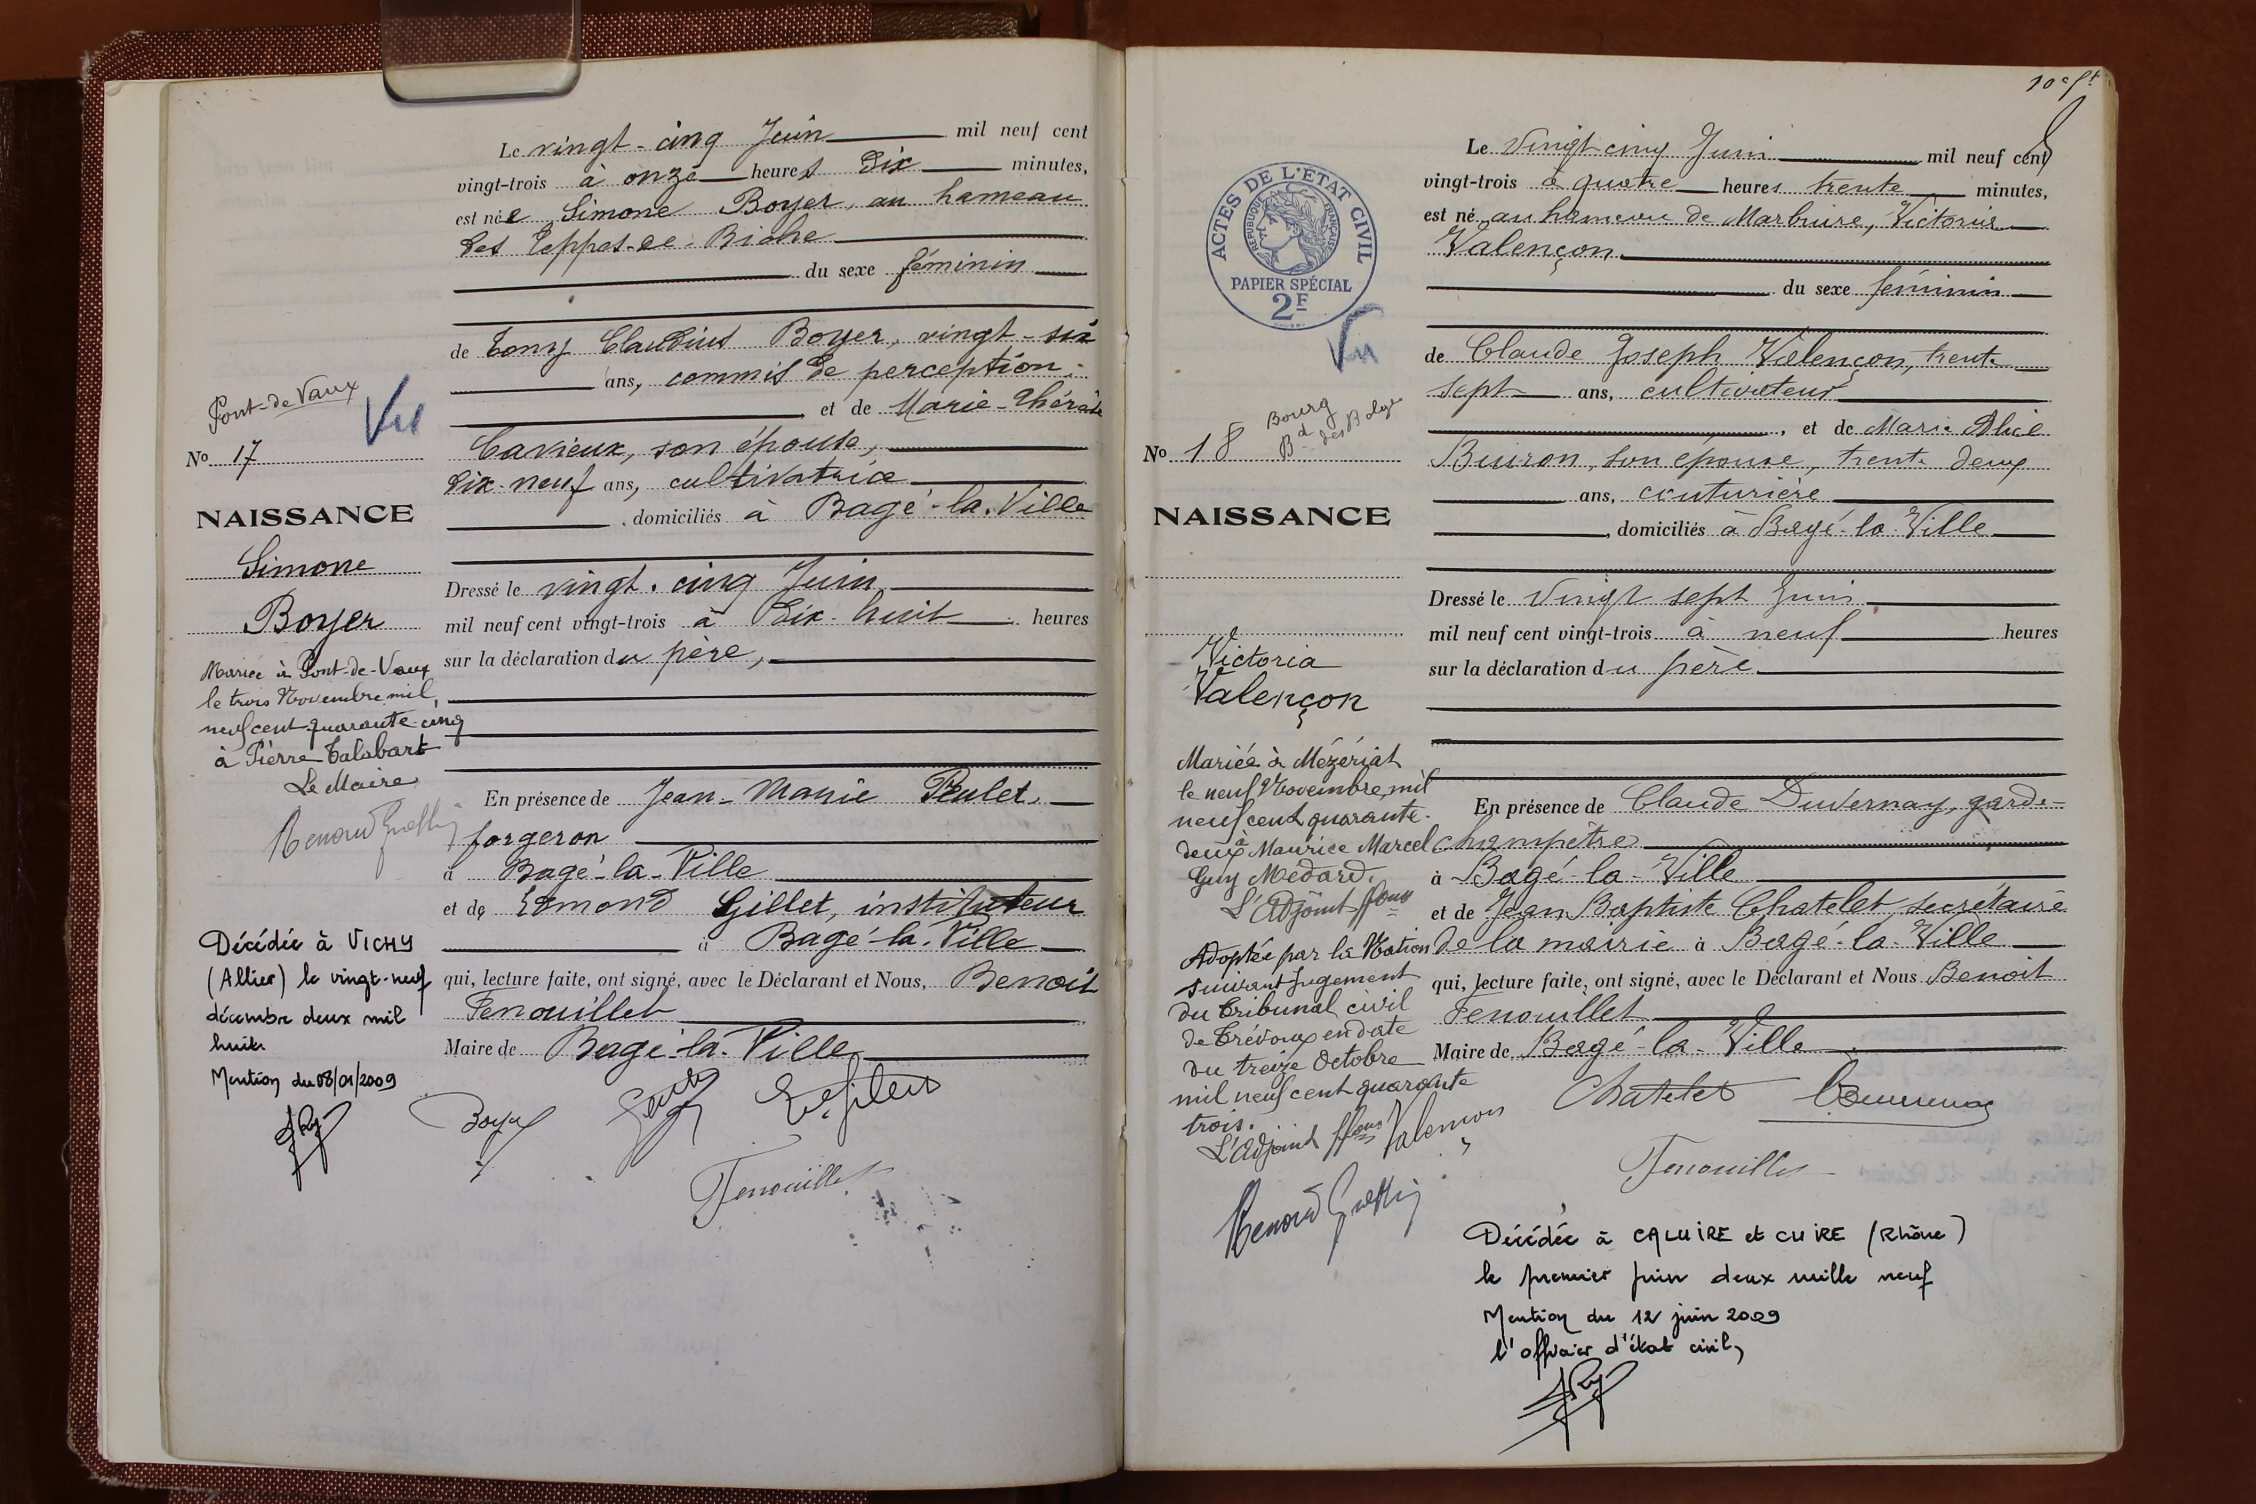 Le vingt-cinq Juin mil neuf cent
vingt-trois à onze heures dix minutes,
est née Simone Boyer, au hameau
des Teppes-de-Biche
du sexe féminin
de Tony Claudius Boyer, vingt-six
ans, commis de perception,
et de Marie-Thérèse
Cavieux, son épouse,
dix-neuf ans, cultivatrice
, domiciliés à Bagé-la-Ville
Dressé le vingt-cinq Juin
mil neuf cent vingt-trois à dix-huit heures
sur la déclaration du père,
En présence de Jean-Marie Peulet,
forgeron
à Bagé-la-Ville
et de Edmond Gillet, instituteur
à Bagé-la-Ville
qui, lecture faite, ont signé, avec le Déclarant et Nous, Benoit
Fenouillet
Maire de Bagé-la-Ville
Boyer
Fenouillet
Pont-de-Vaux
Vu
No 17
NAISSANCE
Simone
Boyer
Mariée à Pont-de-Vaux
le trois Novembre mil
neuf cent quarante-cinq
à Pierre Talabart
Le Maire
Décédée à VICHY
(Allier) le vingt-neuf
décembre deux mil
huit
Mention du 08/01/2009
10e ft
Le vingt cinq Juin mil neuf cent
vingt-trois à quatre heures trente minutes,
est né au hameau de Marbuire, Victoria
Valençon
du sexe féminin
de Claude Joseph Valençon, trente
sept ans, cultivateur
, et de Marie Alice
Buiron, son épouse, trente deux
ans, couturière
, domiciliés à Bagé-la-Ville
Dressé le vingt sept Juin
mil neuf cent vingt-trois à neuf heures
sur la déclaration du père
En présence de Claude Duvernay, garde-
champêtre
à Bagé-la-Ville
et de Jean Baptiste Chatelet, secrétaire
de la mairie à Bagé-la-Ville
qui, lecture faite, ont signé, avec le Déclarant et Nous Benoit
Fenouillet
Maire de Bagé-la-Ville
Chatelet
Valençon
Fenouillet
Décédée à CALUIRE et CUIRE (Rhône)
le premier juin deux mille neuf
Mention du 12 juin 2009
l'officier d'état civil,
ACTES DE L'ÉTAT CIVIL
RÉPUBLIQUE FRANÇAISE
PAPIER SPÉCIAL
2F
Vu
Bourg
Bd des Belges
No 18
NAISSANCE
Victoria
Valençon
Mariée à Mézériat
le neuf Novembre mil
neuf cent quarante-
deux à Maurice Marcel
Guy Médard.
L'Adjoint
Adoptée par la Nation
suivant jugement
du Tribunal civil
de Trévoux en date
du treize Octobre
mil neuf cent quarante
trois.
L'Adjoint